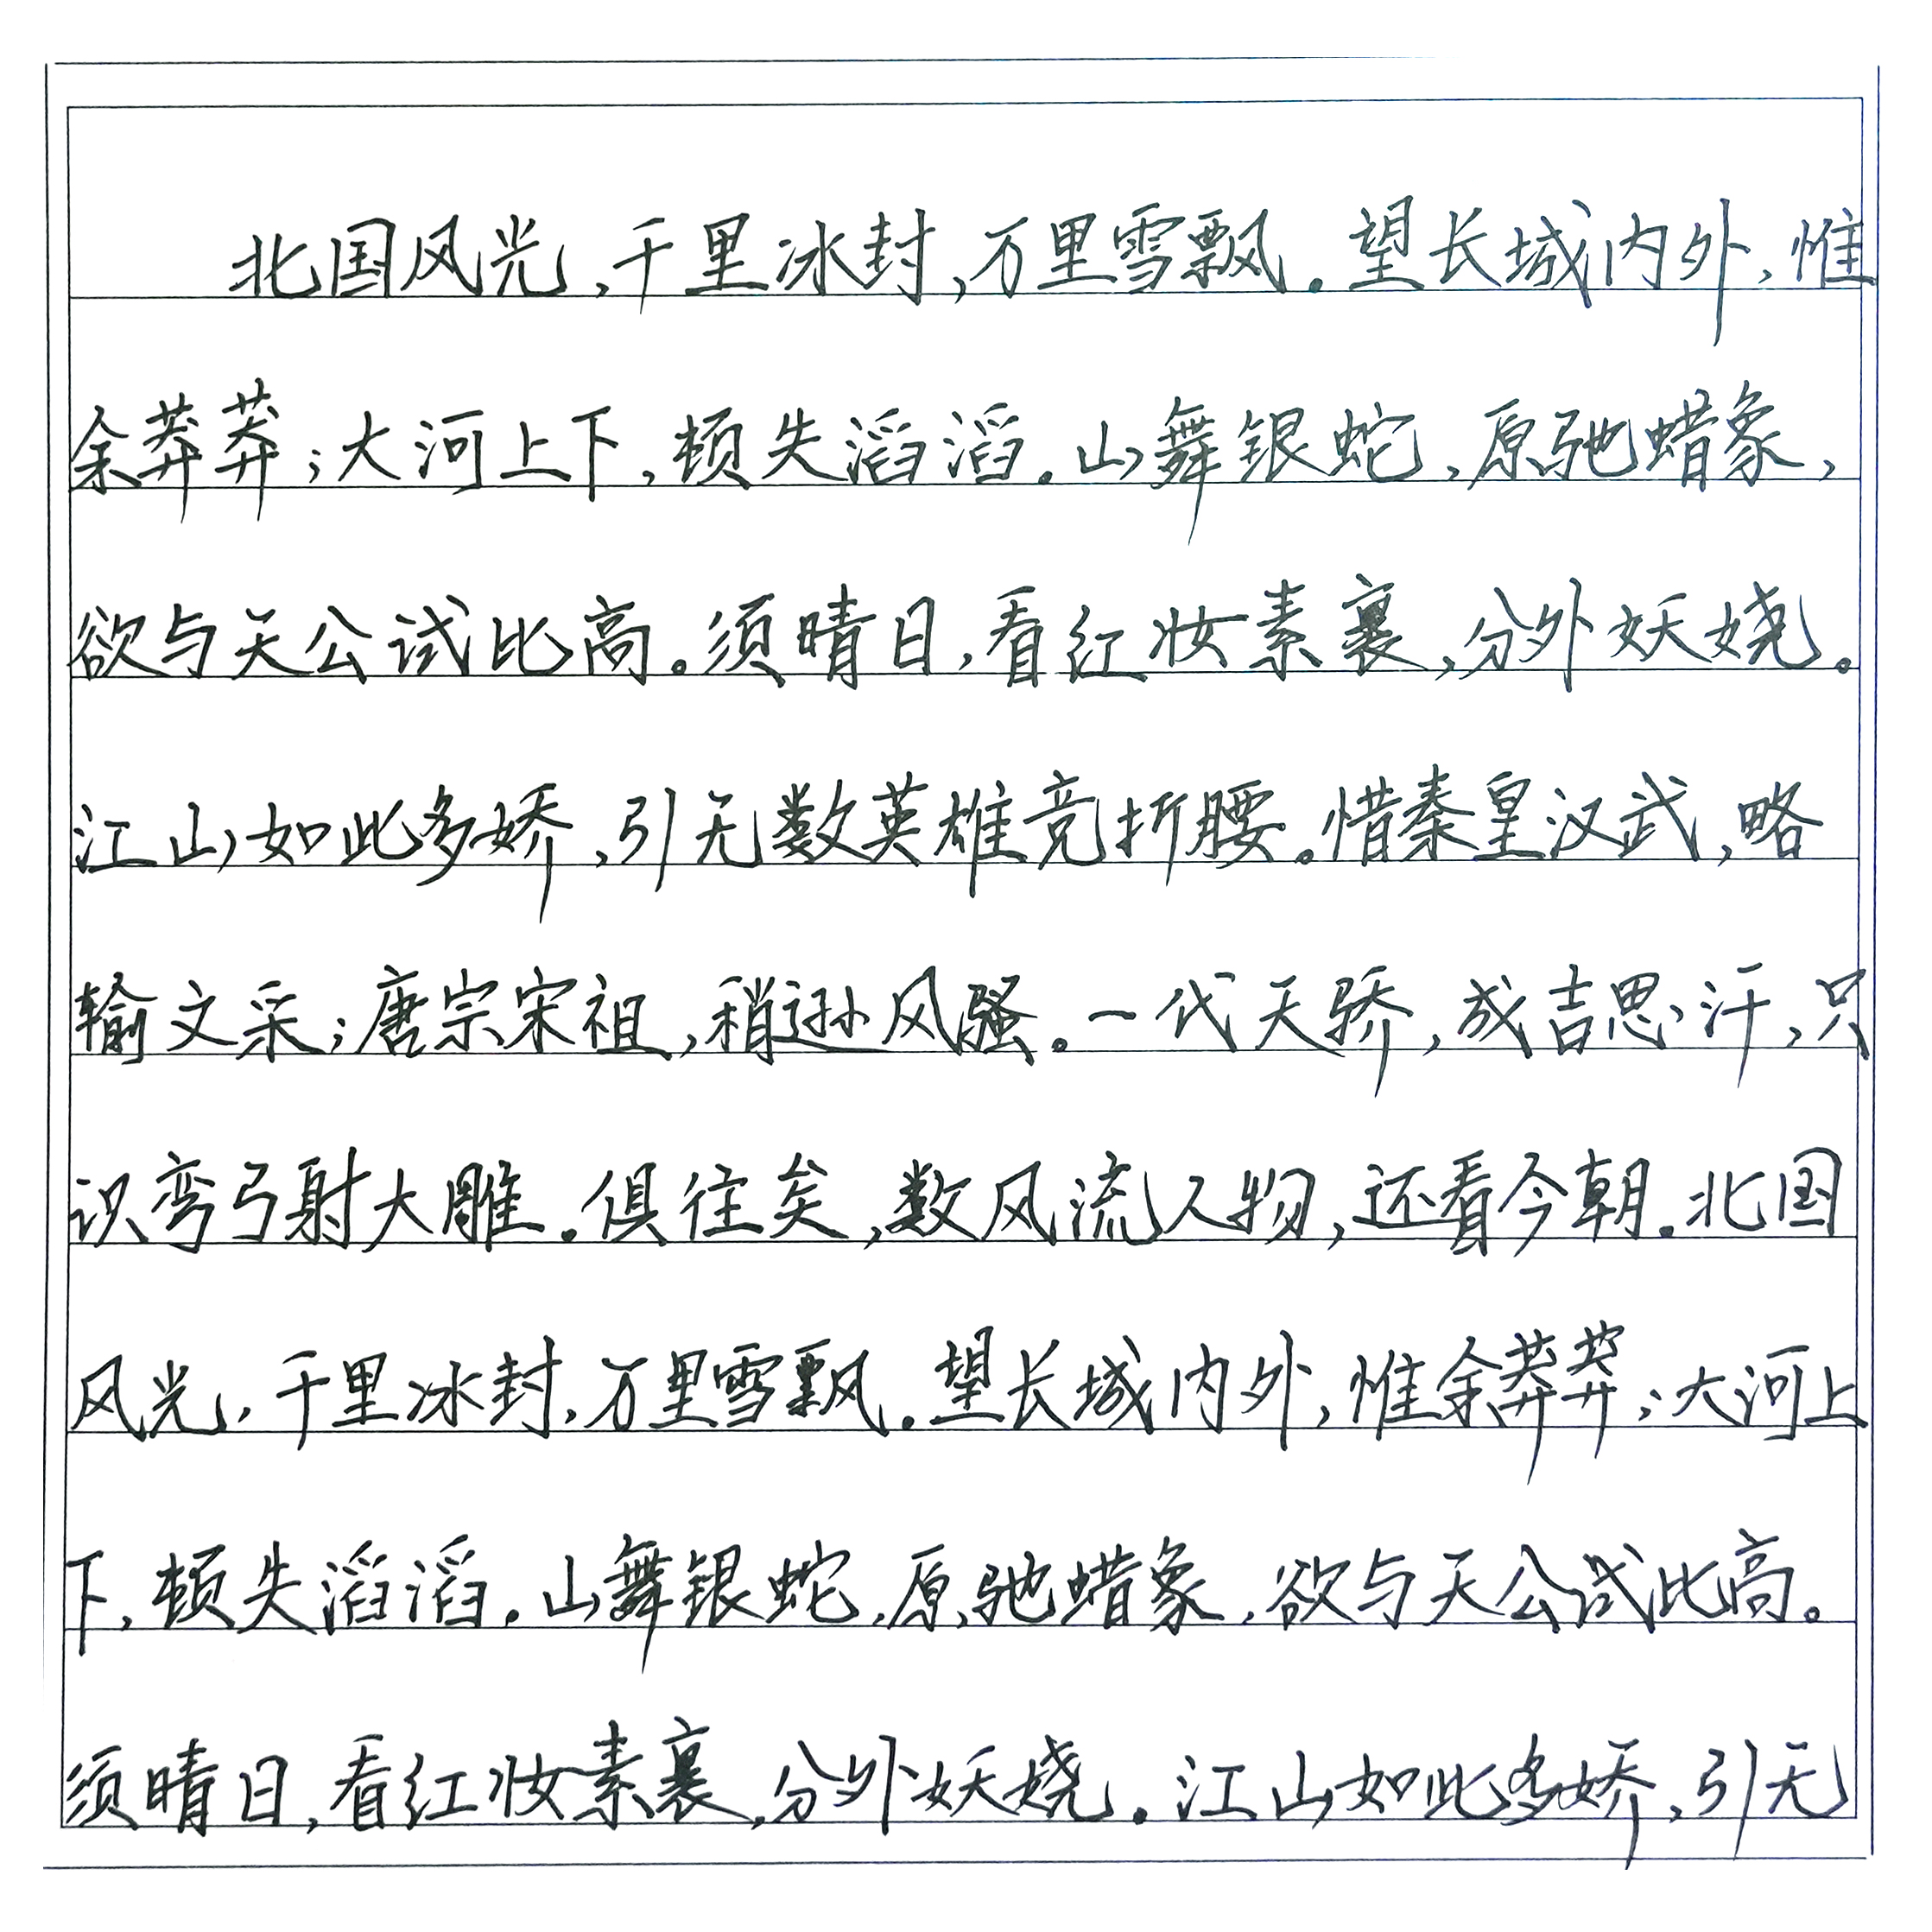 北国风光,千里冰封,万里雪飘.望长城内外,惟
余莽莽;大河上下,顿失滔滔.山舞银蛇,原驰蜡象,
欲与天公试比高。须晴日,看红妆素裹,分外妖娆。
江山如此多娇,引无数英雄竞折腰。惜秦皇汉武,略
输文采;唐宗宋祖,稍逊风骚。一代天骄,成吉思汗,只
识弯弓射大雕.俱往矣,数风流人物,还看今朝.北国
风光,千里冰封,万里雪飘.望长城内外,惟余莽莽;大河上
下,顿失滔滔.山舞银蛇,原驰蜡象,欲与天公试比高。
须晴日,看红妆素裹,分外妖娆.江山如此多娇,引无